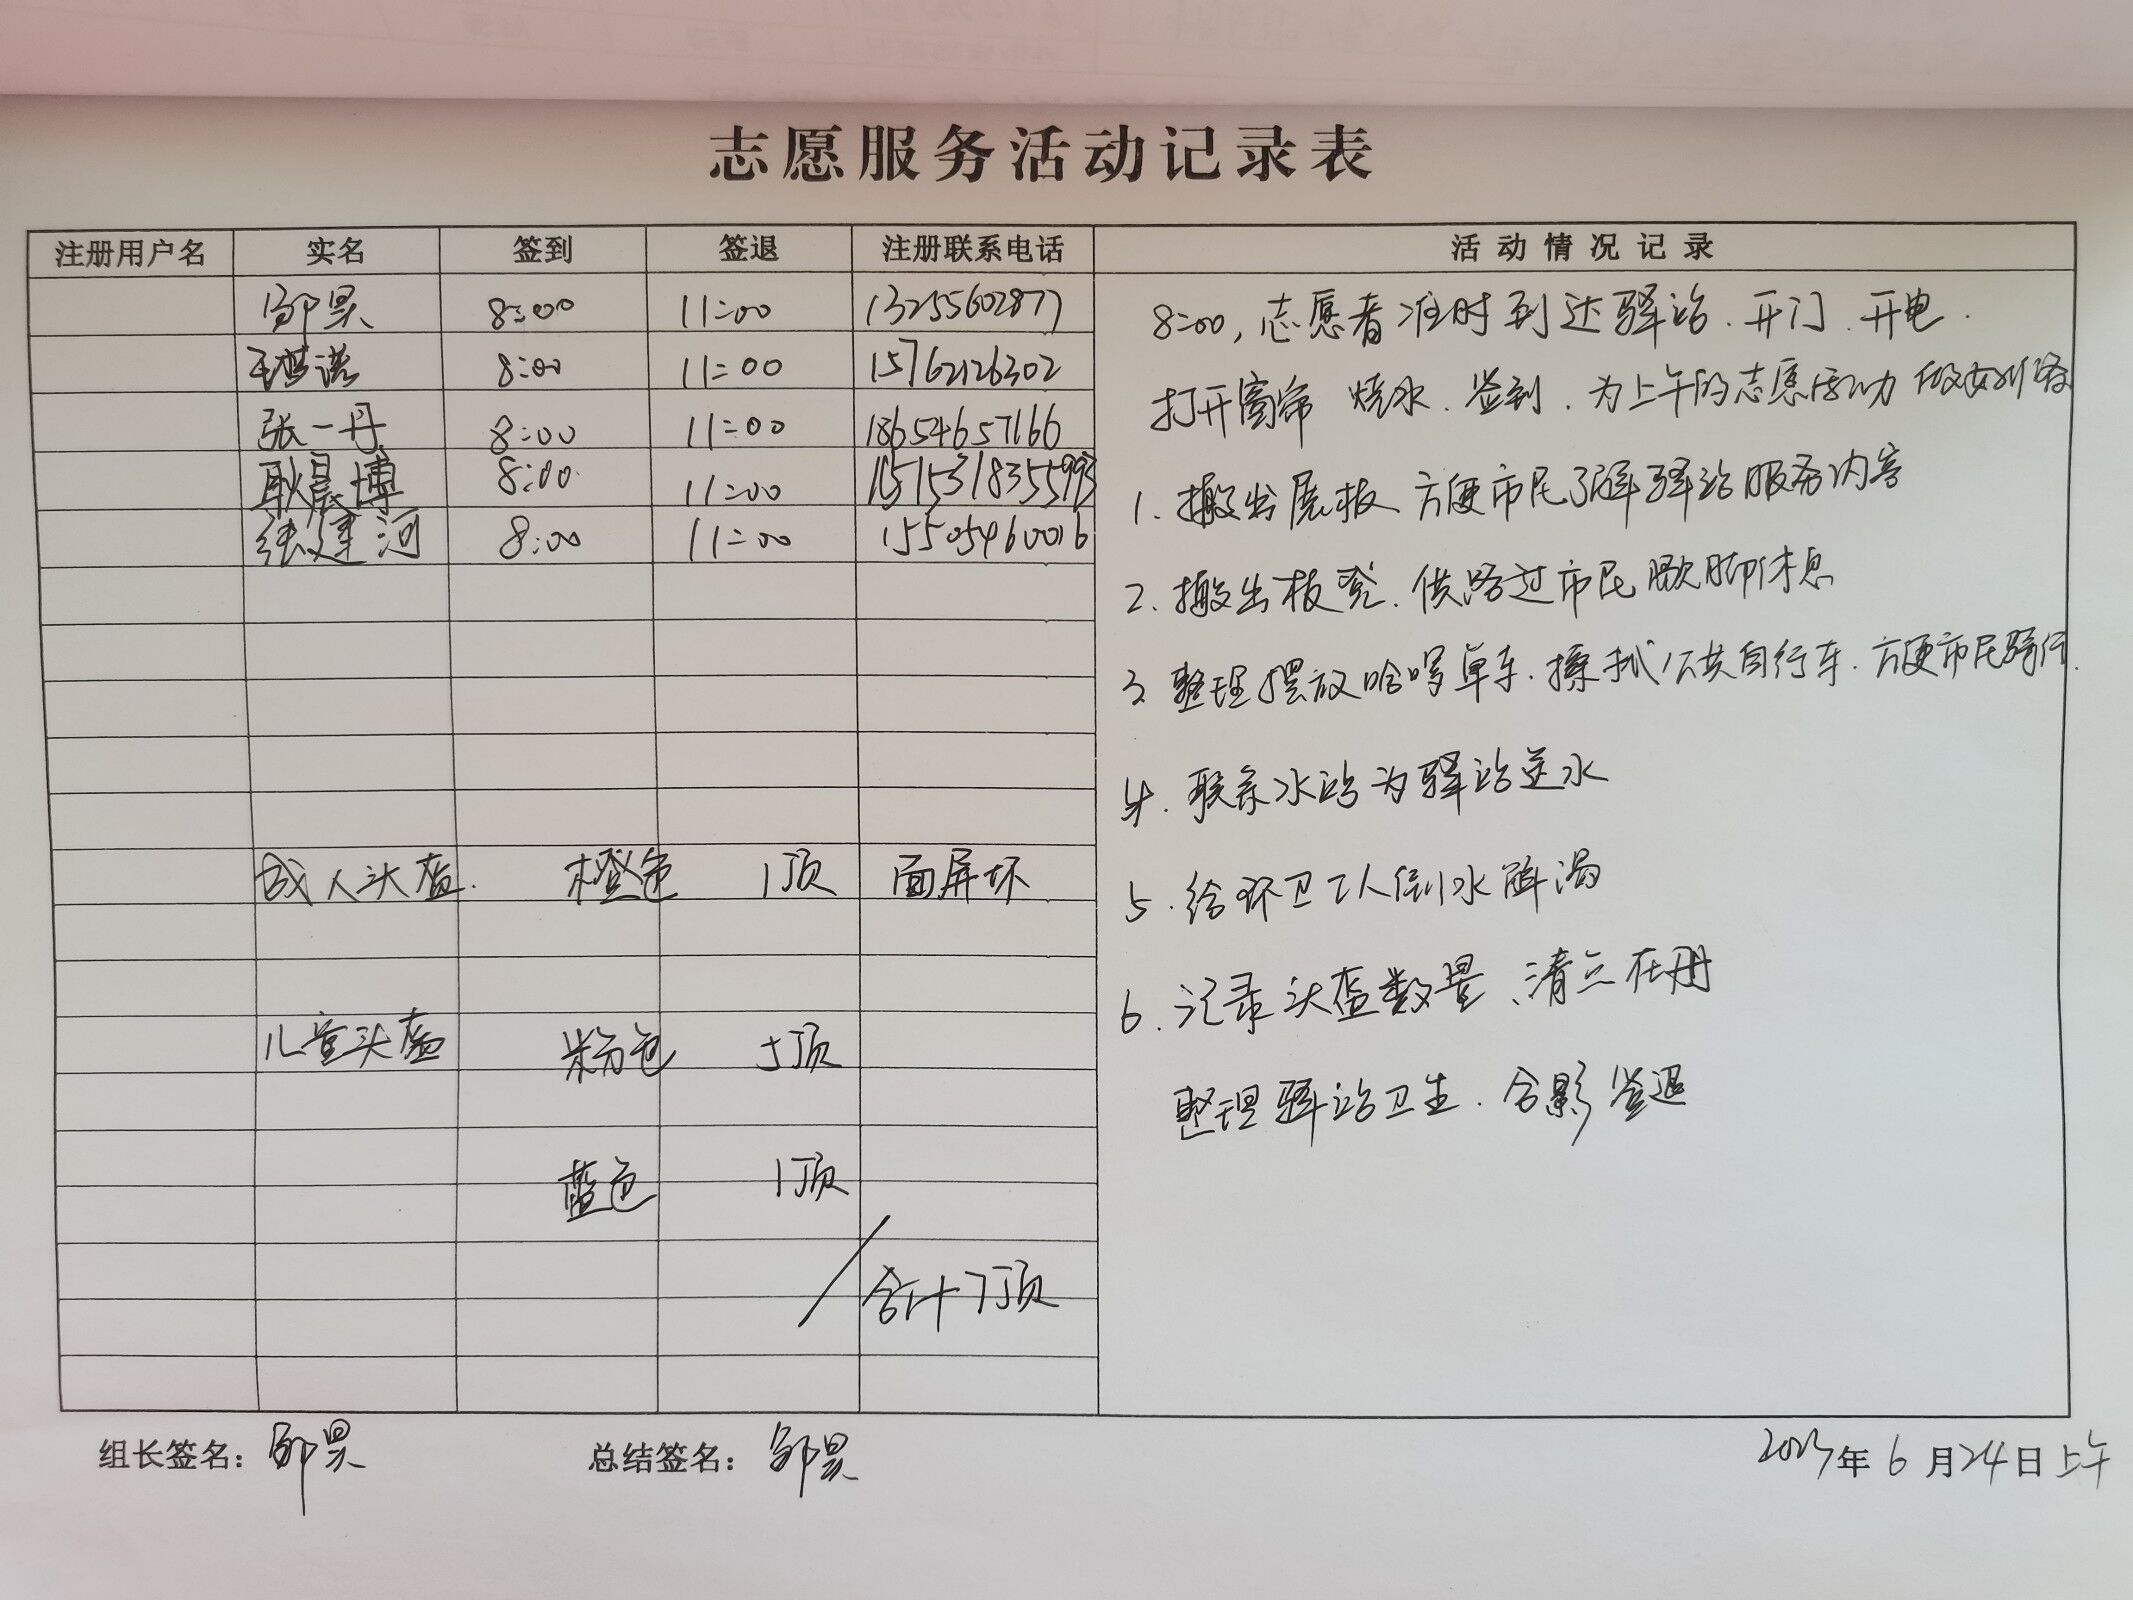 志愿服务活动记录表
注册用户名 实名 签到 签退 注册联系电话 活动情况记录
邹昊 8:00 11:00 13255602877
8:00 11:00 15762126302
张一丹 8:00 11:00 18654657166
耿晨博 8:00 11:00
张建河 8:00 11:00 15505460016
成人头盔. 橙色 1顶 面屏坏
儿童头盔 粉色 5顶
蓝色 1顶
合计7顶
8:00,志愿者准时到达驿站.开门.开电.
打开窗帘 烧水.签到.为上午的志愿活动做好准备
1.搬出展板 方便市民了解驿站服务内容
2.搬出板凳.供路过市民歇脚休息
3.整理摆放哈啰单车.擦拭公共自行车.方便市民骑行.
4.联系水站为驿站送水
5.给环卫工人倒水解渴
6.记录头盔数量、清点在册
整理驿站卫生.合影签退
组长签名:邹昊 总结签名:邹昊 2023年6月24日上午